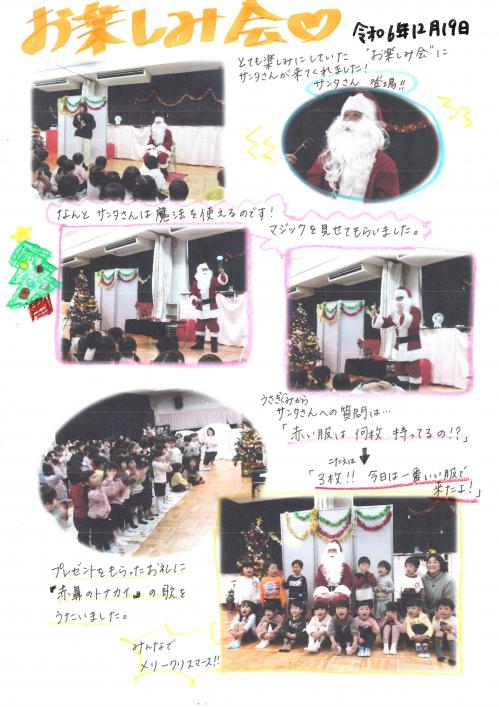 お楽しみ会♡
令和6年12月19日
とても楽しみにしていた "お楽しみ会"に
サンタさんが来てくれました!
サンタさん 登場!!
なんと サンタさんは魔法を使えるのです!
マジックを見せてもらいました。
うさぎぐみから
サンタさんへの質問は…
「赤い服は 何枚 持ってるの!?」
こたえは
「3枚!! 今日は一番いい服で
来たよ!」
プレゼントをもらったお礼に
『赤鼻のトナカイ』の歌を
うたいました。
みんなで
メリークリスマース!!